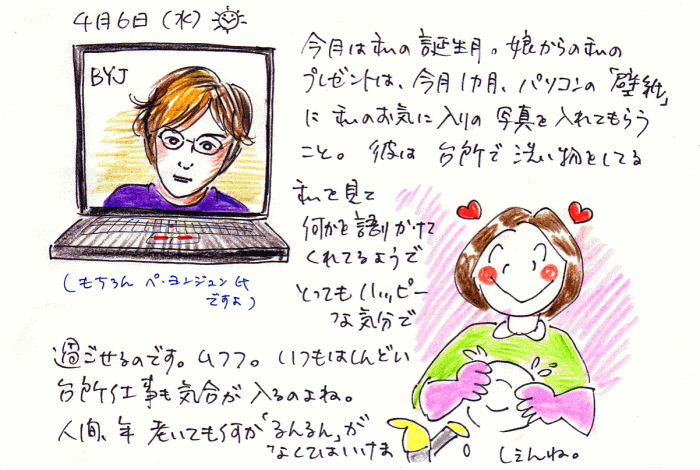 4月6日（水）
BYJ
今月は私の誕生月。娘からの私の
プレゼントは、今月1カ月、パソコンの「壁紙」
に私のお気に入りの写真を入れてもらう
こと。彼は台所で洗い物をしてる
私を見て
何かを語りかけて
くれてるようで
とってもハッピー
な気分で
（もちろんペ・ヨンジュン
ですよ）
過ごせるのです。ムフフ。いつもはしんどい
台所仕事も気合が入るのよね。
人間、年老いても何か「るんるん」が
なくてはいけま
しぇんね。